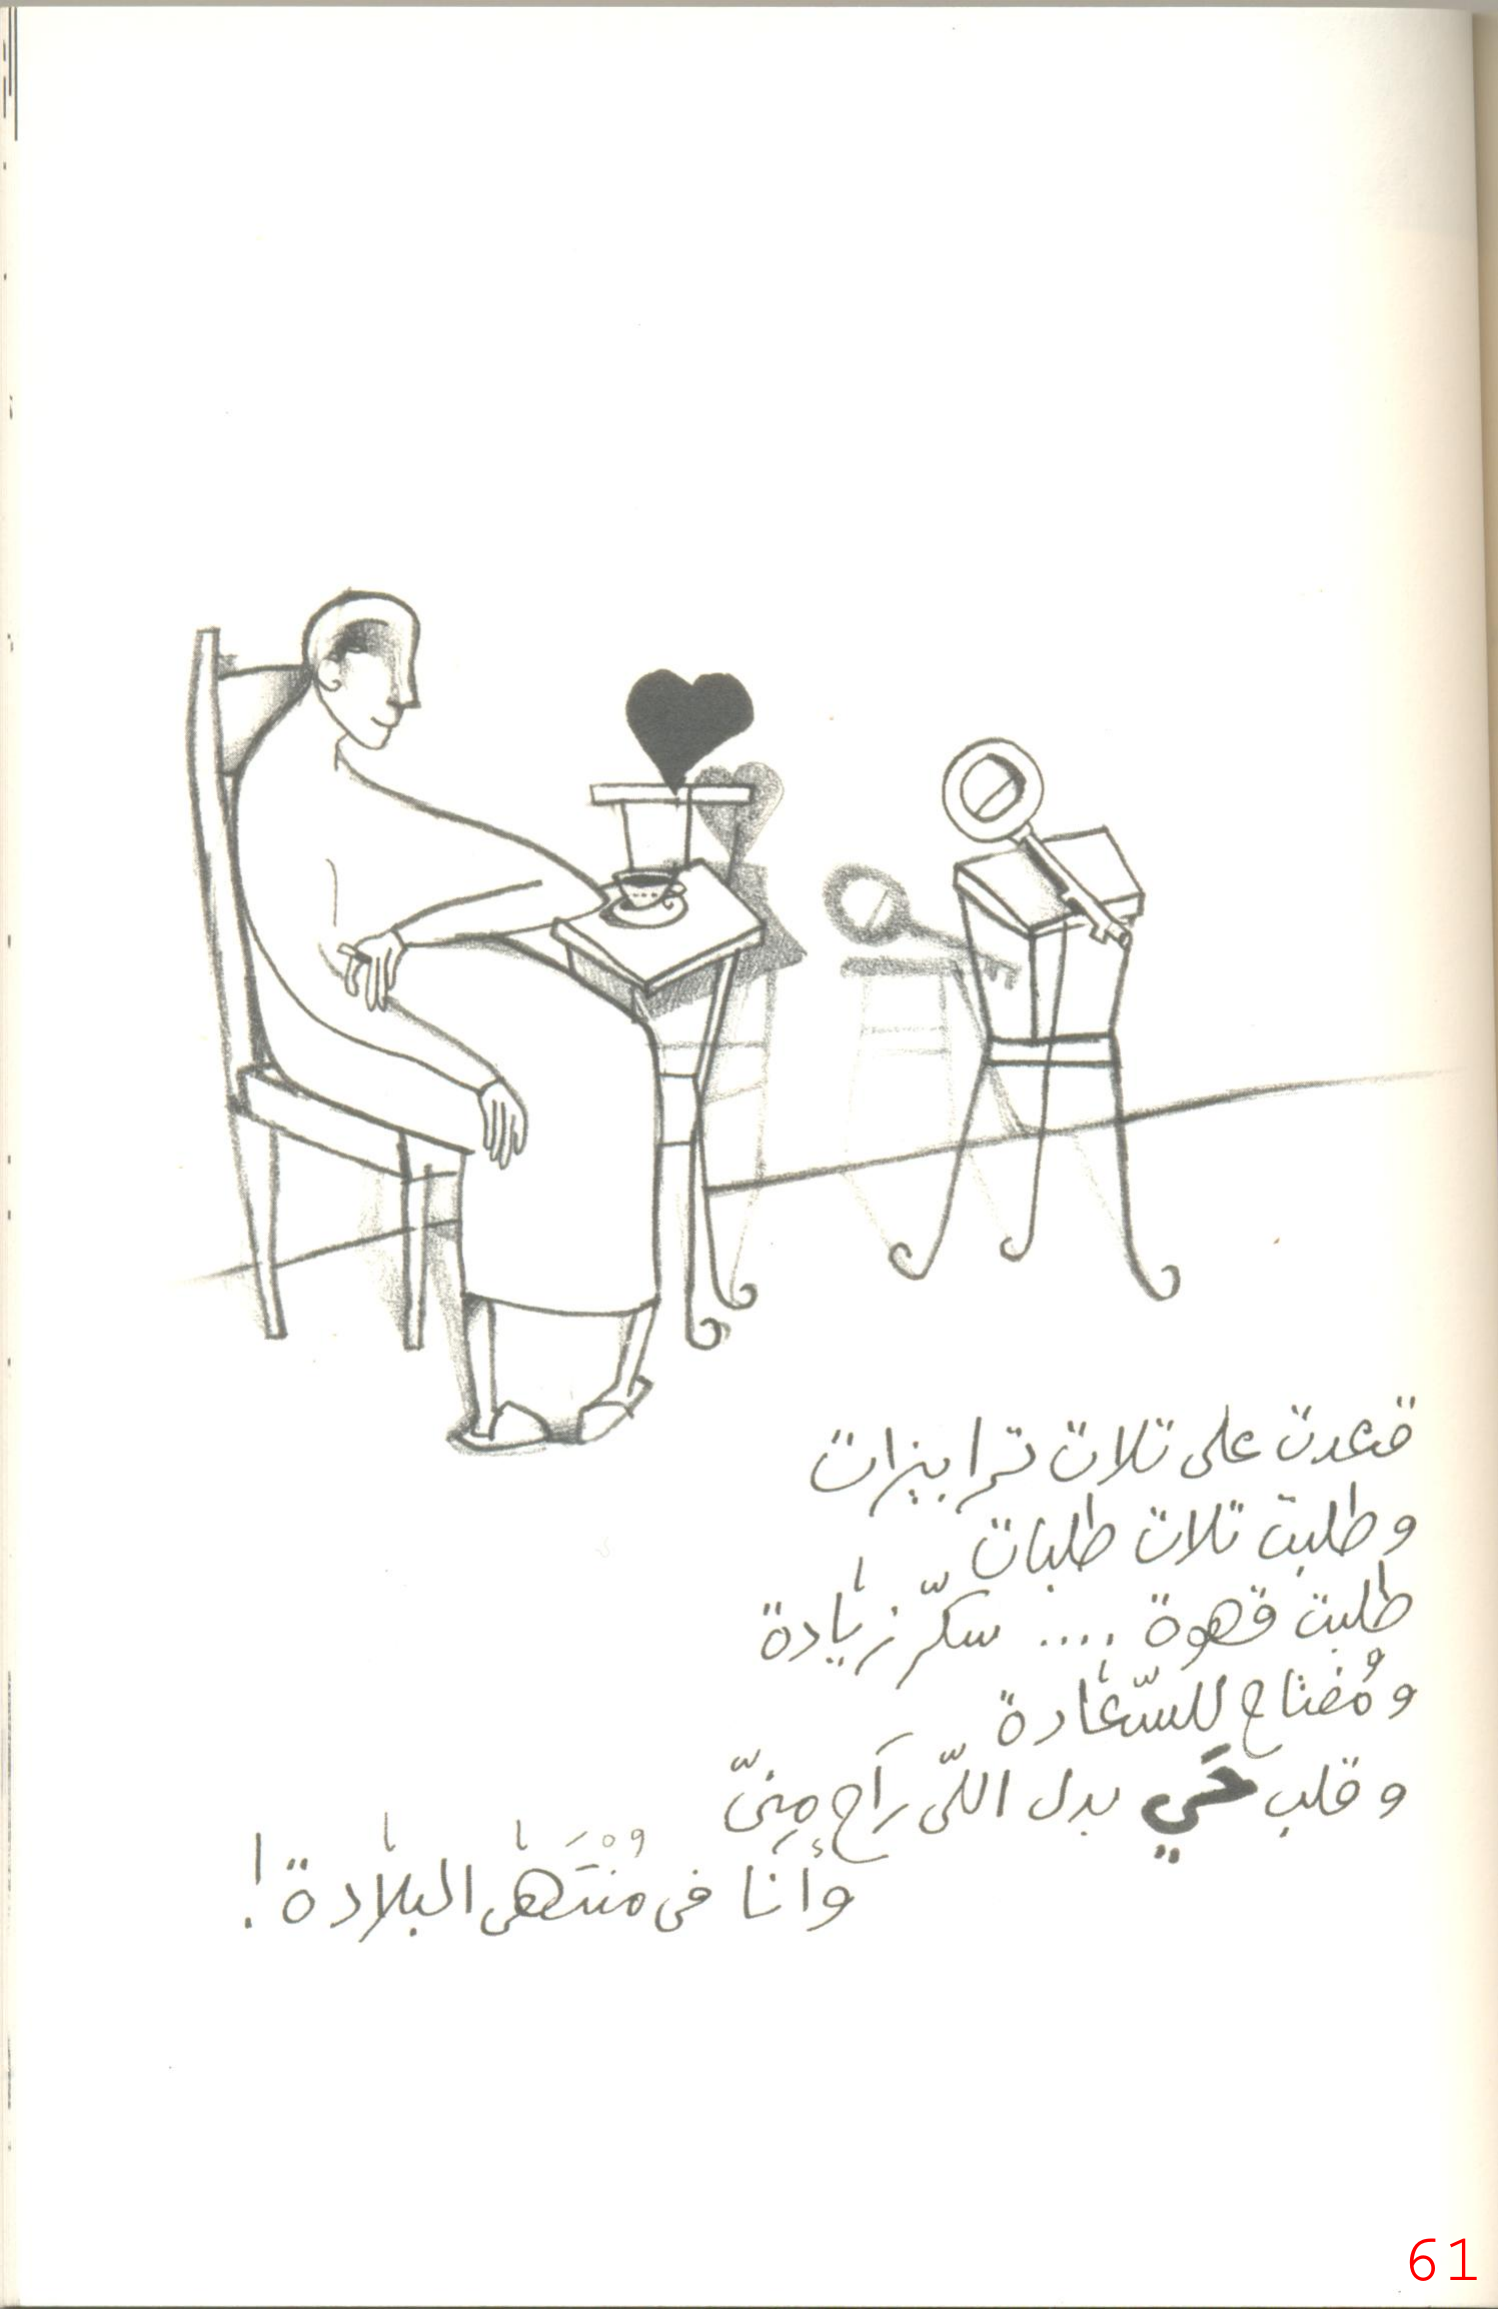 قعدت على تلات ترابيزات
وطلبت تلات طلبات
طلبت قهوة .... سكّر زيادة
ومُفتاح للسّعادة
وقلب حَي بدل اللّى رَاح مِنىّ
وأنا فى مُنْتَهَى البلادة !
61